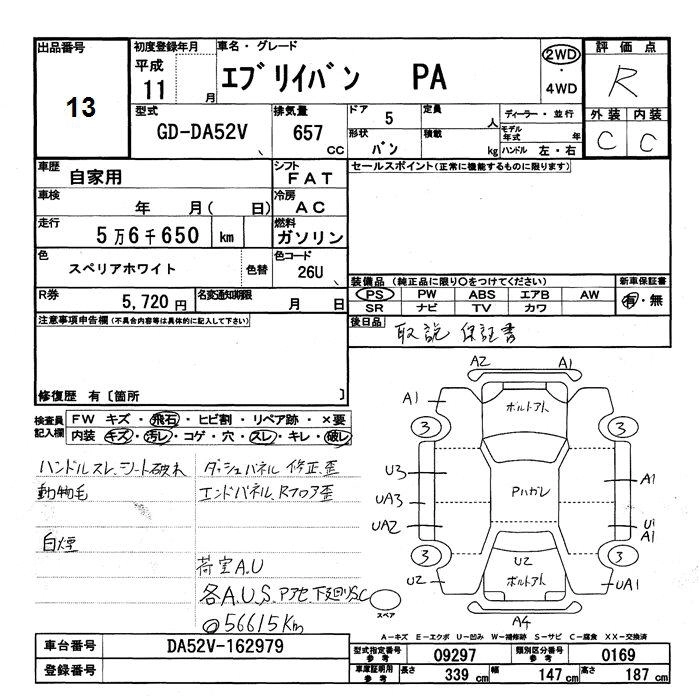 出品番号
13
初度登録年月
平成
11 月
車名・グレード
エブリイバン PA
2WD
・
4WD
評価点
R
外装 内装
C C
型式
GD-DA52V
排気量
657 cc
ドア 5
形状 バン
定員 人
積載 kg
ディーラー・並行
モデル年式 年
ハンドル 左・右
車歴 自家用
シフト FAT
車検 年 月( 日)
冷房 AC
走行 5万6千650 km
燃料 ガソリン
色 スペリアホワイト 色替
色コード 26U
R券 5,720円
名変通知期限 月 日
セールスポイント(正常に機能するものに限ります)
装備品(純正品に限り○をつけてください)
PS PW ABS エアB AW
SR ナビ TV カワ
新車保証書
有・無
後日品 取説 保証書
注意事項申告欄(不具合内容等は具体的に記入して下さい)
修復歴 有〔箇所 〕
検査員記入欄
FW キズ・飛石・ヒビ割・リペア跡・×要
内装 キズ・汚レ・コゲ・穴・スレ・キレ・破レ
ハンドルスレ、シート破れ
動物毛
白煙
ダッシュパネル 修正歪
エンドパネル、Rフロア歪
荷室A.U
各A.U.S. 下廻りS.C
@56615Km
A2 A1
A1
ボルトアト
3 3
U3
A1
Pハガレ
UA3
UA2
U1
A1
3 3
U2
U2
ボルトアト
UA1
スペア
A4
A-キズ E-エクボ U-凹み W-補修跡 S-サビ C-腐食 XX-交換済
車台番号 DA52V-162979
登録番号
型式指定番号 参考 09297
類別区分番号 参考 0169
車庫証明用 参考 長さ 339 cm 幅 147 cm 高さ 187 cm